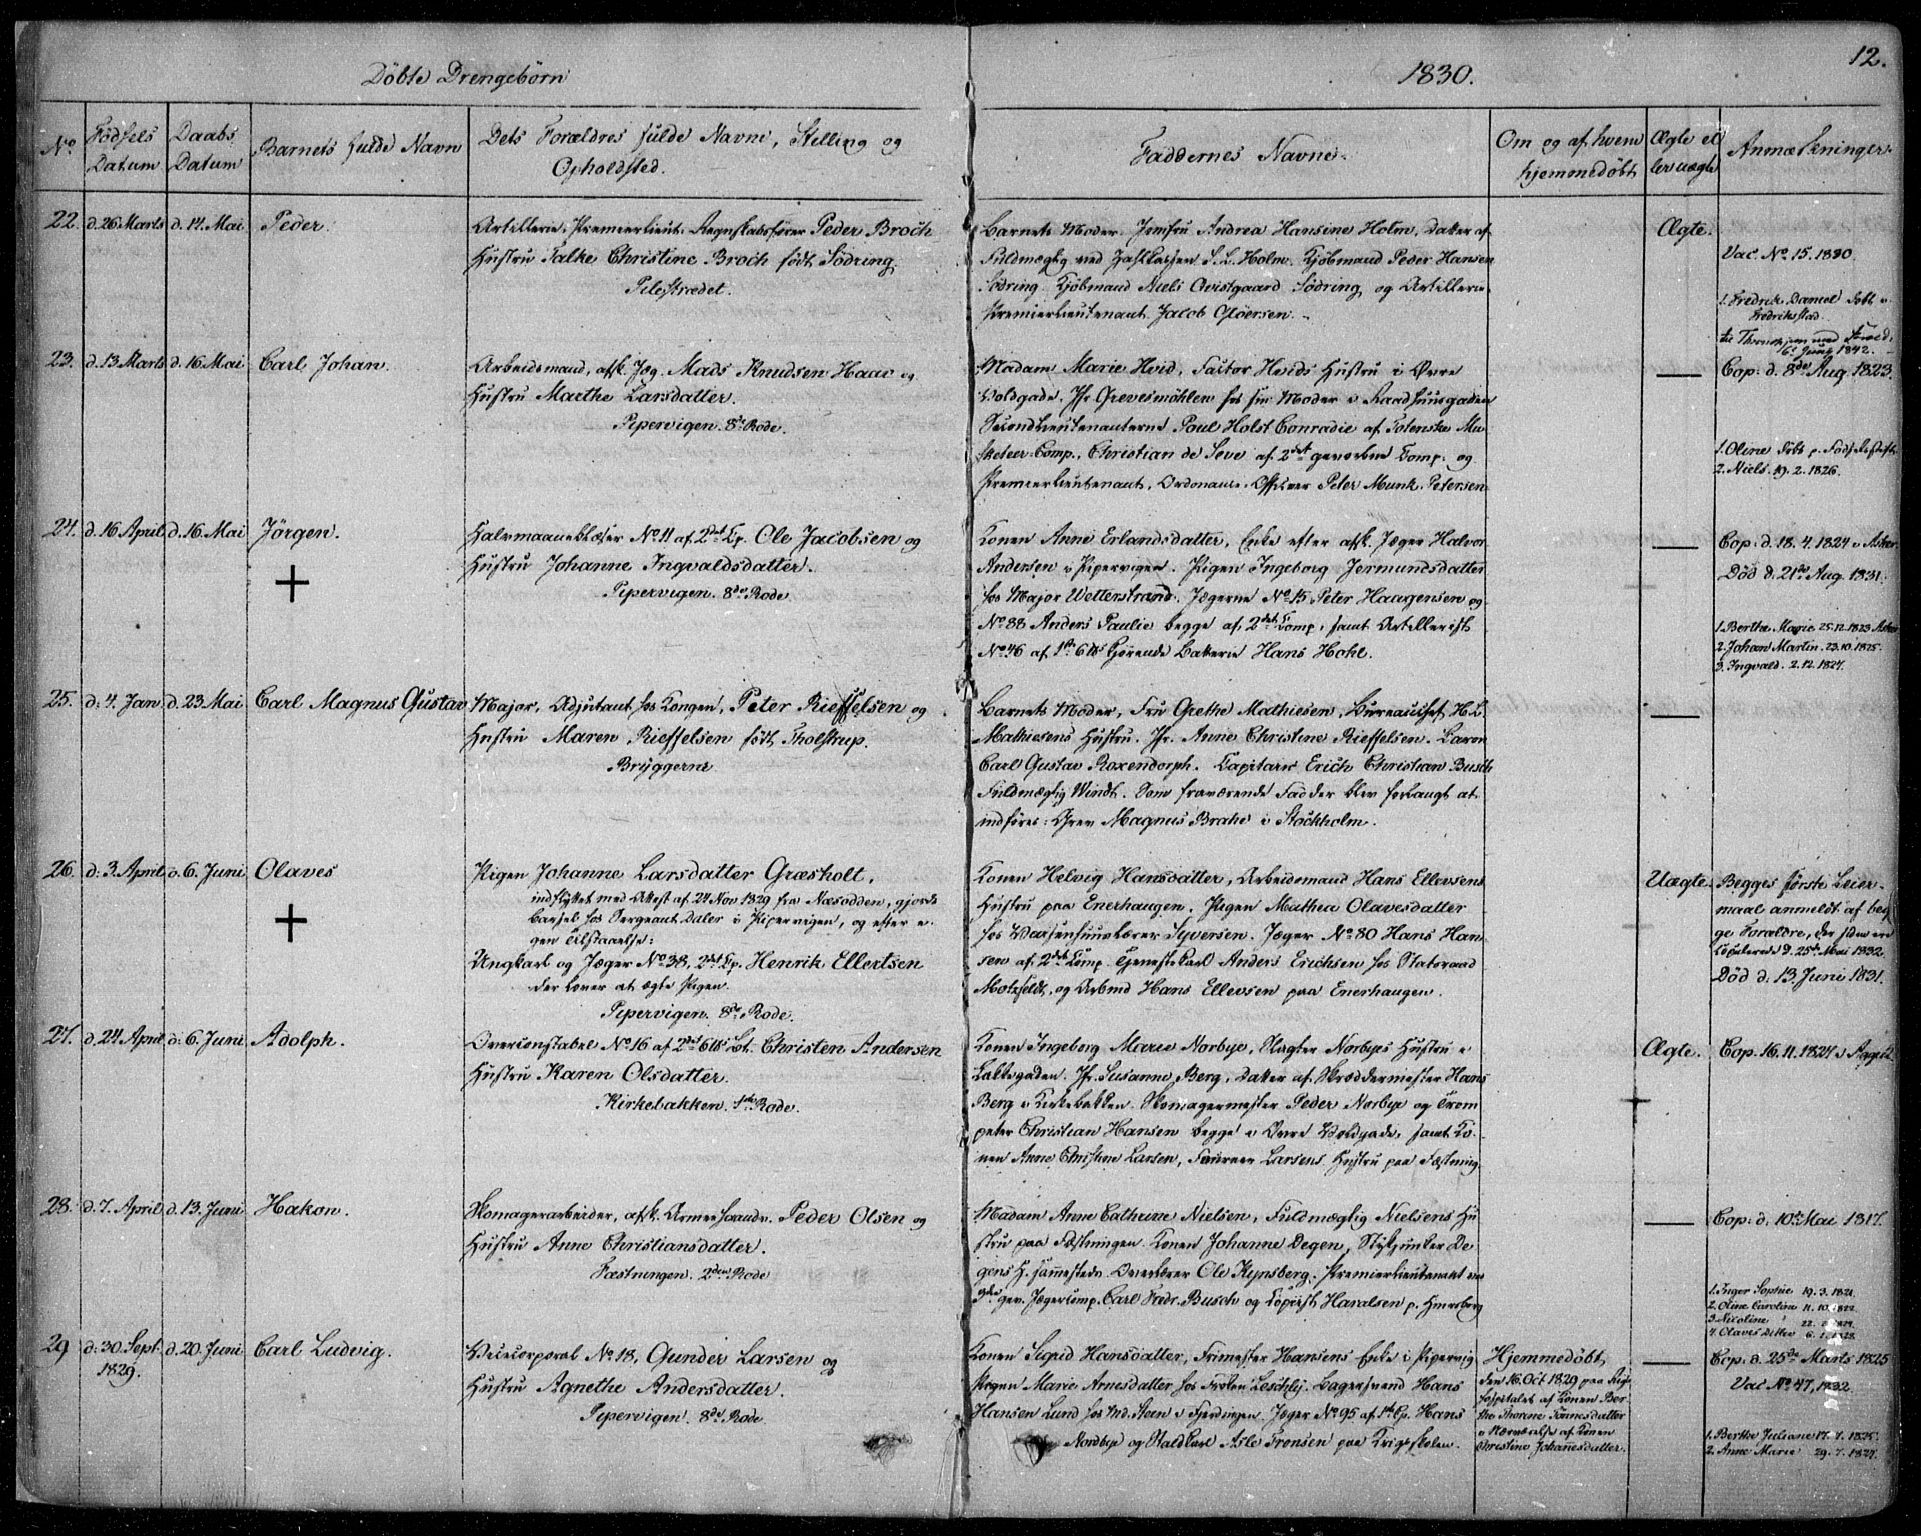 Döbte Drengebörn
1830.
12.
No
Födsels Datum
Daabs Datum
Barnets fulde Navn
Dets Forældres fulde Navne, Stilling og
Opholdsted.
Faddernes Navne.
Om og af hvem
hjemmedöbt
Ægte el
ler uægte
Anmærkninger
22. d. 26 Marts d. 14. Mai Peder.
Artillerie-Premierlieut. Regnskabsförer Peder Broch
Hustru Talke Christine Broch födt Södring.
Pilestrædet.
Barnets Moder. Jomfru Andrea Hansine Holm, Datter af
Fuldmægtig ved S. L. Holm. Kjöbmand Peder Hansen
Södring. Kjöbmand Niels Qvistgaard Södring og Artillerie-
Premierlieutenant Jacob Glöersen.
Ægte.
Vac. No. 15. 1830.
1. Fredrik Daniel föbt i
Fredrikstad.
Throndhjem med Foræld.
6. Juny 1842.
23. d. 13 Marts d. 16 Mai Carl Johan.
Arbeidsmand, afsk. Jæg. Mads Knudsen Haav og
Hustru Marthe Larsdatter.
Pipervigen. 8de Rode.
Madam Marie Hvid, Factor Hvids Hustru i Övre
Voldgade. Jfr. Grevesmöhlen hos sin Moder i Raadhuusgaden
Secondlieutenanterne Poul Holst Conradie af Totenske Mu-
sketeer-Comp., Christian de Seve af 2det gevorbne Comp. og
Premierlieutenant, Ordonance-Officer Peter Munk Petersen
Cop: d. 8de Aug 1823.
1. Oline föbt p. Föds.stift.
2. Niels. 19. 2. 1826.
24. d. 16 April d. 16. Mai Jörgen.
Halvmaaneblæser No. 11 af 2det Cp. Ole Jacobsen og
Hustru Johanne Ingvaldsdatter.
Pipervigen. 8de Rode.
Konen Anne Erlandsdatter, Enke efter afsk. Jæger Halvor
Andersen i Pipervigen. Pigen Ingeborg Jermundsdatter
hos Major Wetterstrand. Jægerne No. 15 Peter Haagensen og
No. 88 Anders Paulie begge af 2det Comp. samt Artillerist
No. 46 af 1ste 6 tbs kjörende Batterie Hans Hohl.
Cop: d. 18. 4. 1824 i Asker.
Död d. 21de Aug. 1831.
1. Berthe Marie 25.12.1823 Asker
2. Johan Martin. 23.10.1825.
3. Ingvald. 2.12.1827.
25. d: 4. Jan d. 23 Mai Carl Magnus Gustav
Major, Adjutant hos Kongen, Peter Rieffelsen og
Hustru Maren Rieffelsen födt Tholstrup.
Bryggerne
Barnets Moder, Fru Grethe Mathiesen, Bureauchef H. L.
Mathiesens Hustru. Jfr. Anne Christine Rieffelsen. Baron
Carl Gustav Roxendorph. Capitain Erich Christian Busch
Fuldmægtig Windt. Som fraværende Fadder blev forlangt at
indföres: Grev Magnus Brahe i Stockholm.
26. d: 3. April d. 6. Juni Olaves
Pigen Johanne Larsdatter Græsholt,
indflyttet med Attest af 24 Nov 1829 fra Næsodden, gjorde
barsel hos Sergeant Daler i Pipervigen, og efter e-
gen Tilstaaelse:
Ungkarl og Jæger No. 38, 2det Cp. Henrik Ellertsen
der lover at ægte Pigen.
Pipervigen. 8de Rode.
Konen Helvig Hansdatter, Arbeidsmand Hans Ellevsens
Hustru paa Enerhaugen. Pigen Mathea Olavesdatter
hos Waisenhuuslærer Syversen. Jæger No. 80 Hans Han-
sen af 2det Comp. Tjenestekarl Anders Erichsen hos Statsraad
Motzfeldt, og Arbmd Hans Ellevsen paa Enerhaugen.
Uægte.
Begges förste Leier-
maal anmeldt af beg
ge Forældre, der siden ere
Copulerede d. 25de Mai 1832.
Död d: 13 Juni 1831.
27. d. 24 April d: 6. Juni Adolph.
Overconstabel No. 16 af 2det 6 tbs Bt. Christen Andersen
Hustru Karen Olsdatter.
Kirkebakken. 1ste Rode.
Konen Ingeborg Marie Norbye, Slagter Norbyes Hustru i
Lakkegaden. Jfr. Susanne Berg, Datter af Skræddermester Hans
Berg i Kirkebakken. Skomagermester Peder Norbye og Trom-
peter Christian Hansen begge i Övre Voldgade, samt Ko-
nen Anne Christine Larsen, Foureer Larsens Hustru paa Fæstning.
Ægte.
Cop. 16.11.1827 i Agger
28. d. 7. April d. 13. Juni Hakon.
Skomagerarbeider, afsk. Peder Olsen og
Hustru Anne Christiansdatter.
Fæstningen. 2den Rode
Madam Anne Cathrine Nielsen, Fuldmægtig Nielsens Hu-
stru paa Fæstningen. Konen Johanne Degen, Stykjunker De-
gens H. sammesteds. Overlærer Ole Kynsberg. Premierlieutenant ved
gev. Jægercomp. Carl Fredr. Busch og Copiist Haralsen p.
Cop: d. 10de Mai 1817.
1. Inger Sophie 19. 3. 1821.
2. Oline Caroline 11. 10. 1822.
3. Nicoline
4. Olaves Ditlev 6. 1. 1828.
29 d: 30. Sept. d. 20. Juni Carl Ludvig.
1829.
Vicecorporal No. 18, Gunder Larsen og
Hustru Agnethe Andersdatter.
Pipervigen. 8de Rode
Konen Sigrid Hansdatter, Frimester Hansens Enke i Pipervig.
Pigen Marie Arnesdatter hos Fröken Leschly. Bagersvend Hans
Hansen Lund hos Md. Steen i Fjerdingen. Jæger No. 95 af 1ste Cp. Hans
Nordbye og Staldkarl Asle Tronsen paa Krigsskolen.
Hjemmedöbt
den 16 Oct 1829 paa Rigs
hospitalet af Konen Ber-
the Thorine Tönnesdatter
i Nærværelse af Konen
Christine Johanesdatter.
Cop: d. 25de Marts 1825
Vac. No. 47, 1832.
1. Berthe Juliane 17. 7. 1825.
2. Anne Marie 29. 7. 1827.